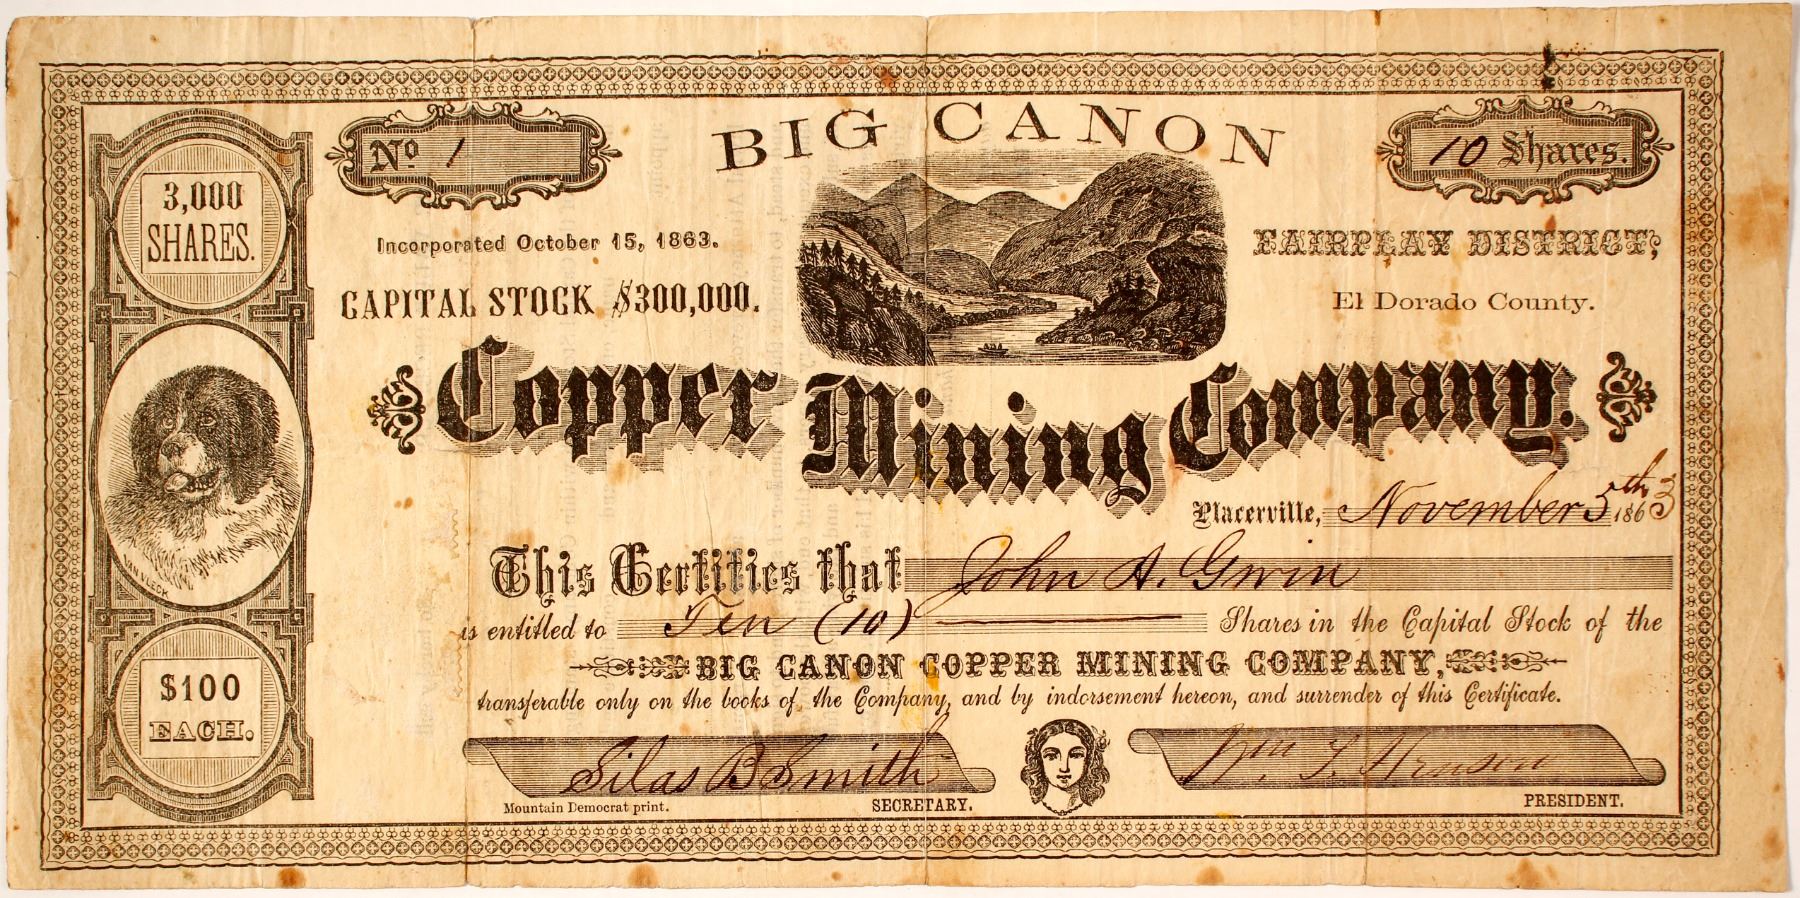 BIG CANON
No 1
10 Shares.
3,000
SHARES.
Incorporated October 15, 1863.
FAIRPLAY DISTRICT,
CAPITAL STOCK $300,000.
El Dorado County.
Copper Mining Company.
Placerville, November 5th 1863
VAN VLECK
This Certifies that John A. Gwin
is entitled to Ten (10) Shares in the Capital Stock of the
BIG CANON COPPER MINING COMPANY,
transferable only on the books of the Company, and by indorsement hereon, and surrender of this Certificate.
$100
EACH.
Silas B Smith
Wm.
Mountain Democrat print.
SECRETARY.
PRESIDENT.